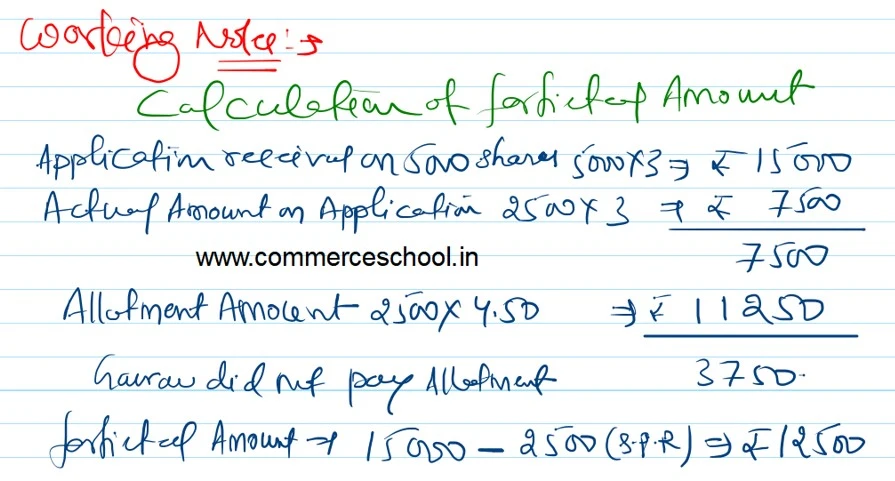 Working Note:-
Calculation of forfieted Amount
Application received on 5000 shares 5000×3 ⇒ ₹ 15000
Actual Amount on Application 2500×3 ⇒ ₹ 7500
www.commerceschool.in 7500
Allotment Amount 2500×4.50 ⇒ ₹ 11250
Gaurav did not pay Allotment 3750
forfieted Amount → 15000 – 2500 (S.P.R) ⇒ ₹12500